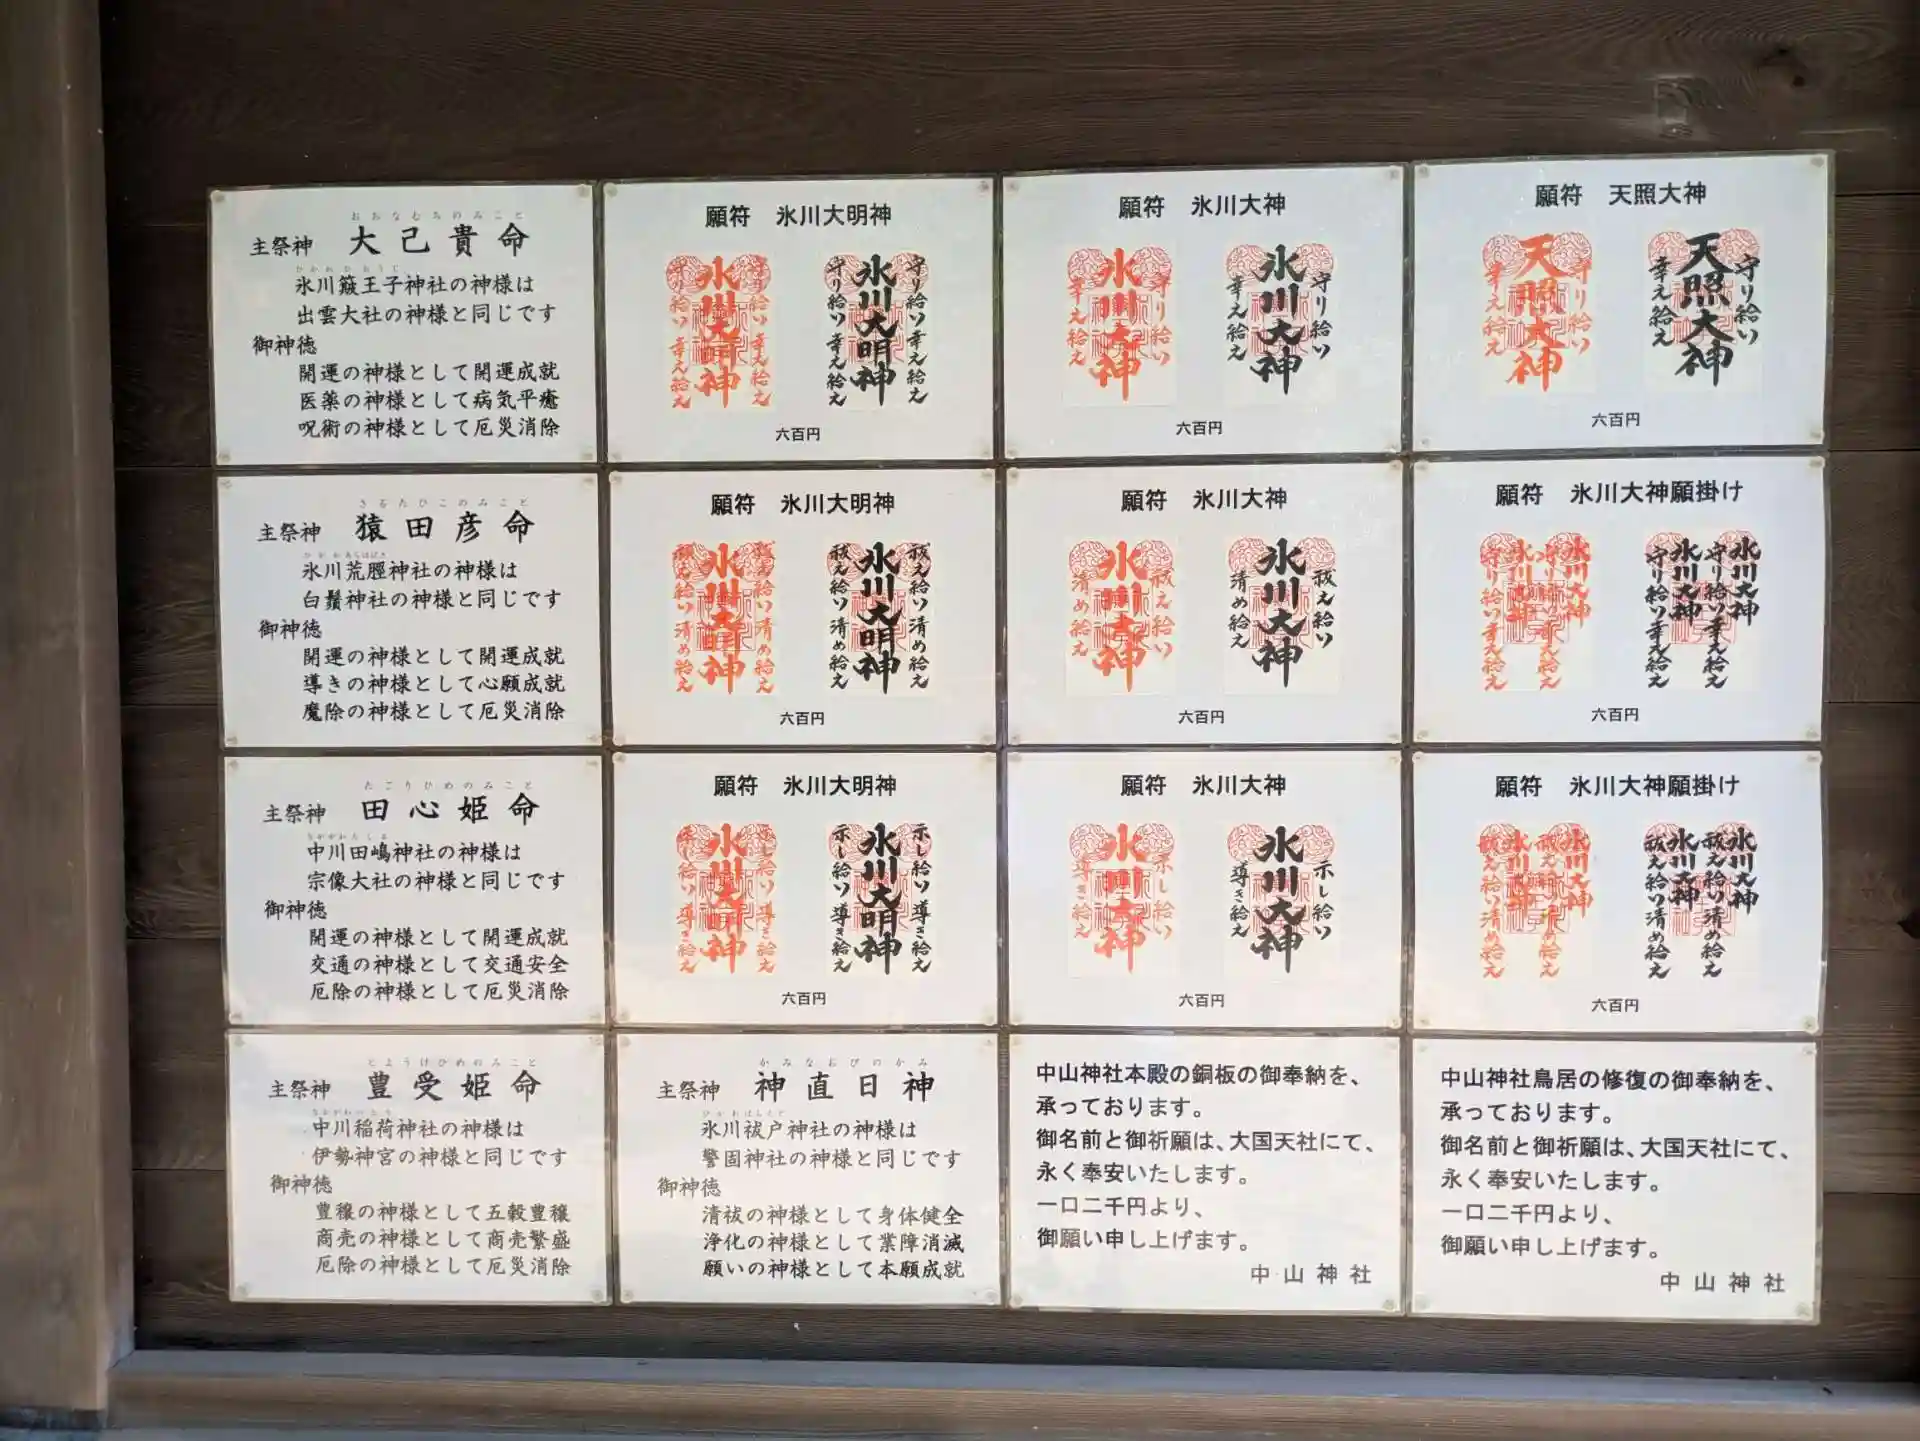 おおなむちのみこと
主祭神 大己貴命
ひかわひおうじ
氷川簸王子神社の神様は
出雲大社の神様と同じです
御神徳
開運の神様として開運成就
医薬の神様として病気平癒
呪術の神様として厄災消除
願符 氷川大明神
守り給い幸え給え
氷川大明神
守り給い幸え給え
守り給い幸え給え
氷川大明神
守り給い幸え給え
六百円
願符 氷川大神
守り給い
氷川大神
幸え給え
守り給い
氷川大神
幸え給え
六百円
願符 天照大神
守り給い
天照大神
幸え給え
守り給い
天照大神
幸え給え
六百円
さるたひこのみこと
主祭神 猿田彦命
ひかわあらはばき
氷川荒脛神社の神様は
白鬚神社の神様と同じです
御神徳
開運の神様として開運成就
導きの神様として心願成就
魔除の神様として厄災消除
願符 氷川大明神
祓え給い清め給え
氷川大明神
祓え給い清め給え
祓え給い清め給え
氷川大明神
祓え給い清め給え
六百円
願符 氷川大神
祓え給い
氷川大神
清め給え
祓え給い
氷川大神
清め給え
六百円
願符 氷川大神願掛け
氷川大神
守り給い幸え給え
氷川大神
守り給い幸え給え
氷川大神
守り給い幸え給え
氷川大神
守り給い幸え給え
六百円
たごりひめのみこと
主祭神 田心姫命
なかがわたじま
中川田嶋神社の神様は
宗像大社の神様と同じです
御神徳
開運の神様として開運成就
交通の神様として交通安全
厄除の神様として厄災消除
願符 氷川大明神
示し給い導き給え
氷川大明神
示し給い導き給え
示し給い導き給え
氷川大明神
示し給い導き給え
六百円
願符 氷川大神
示し給い
氷川大神
導き給え
示し給い
氷川大神
導き給え
六百円
願符 氷川大神願掛け
氷川大神
祓え給い清め給え
氷川大神
祓え給い清め給え
氷川大神
祓え給い清め給え
氷川大神
祓え給い清め給え
六百円
とようけひめのみこと
主祭神 豊受姫命
なかがわいなり
中川稲荷神社の神様は
伊勢神宮の神様と同じです
御神徳
豊穣の神様として五穀豊穣
商売の神様として商売繁盛
厄除の神様として厄災消除
かみなおびのかみ
主祭神 神直日神
ひかわはらえど
氷川祓戸神社の神様は
警固神社の神様と同じです
御神徳
清祓の神様として身体健全
浄化の神様として業障消滅
願いの神様として本願成就
中山神社本殿の銅板の御奉納を、
承っております。
御名前と御祈願は、大国天社にて、
永く奉安いたします。
一口二千円より、
御願い申し上げます。
中山神社
中山神社鳥居の修復の御奉納を、
承っております。
御名前と御祈願は、大国天社にて、
永く奉安いたします。
一口二千円より、
御願い申し上げます。
中山神社